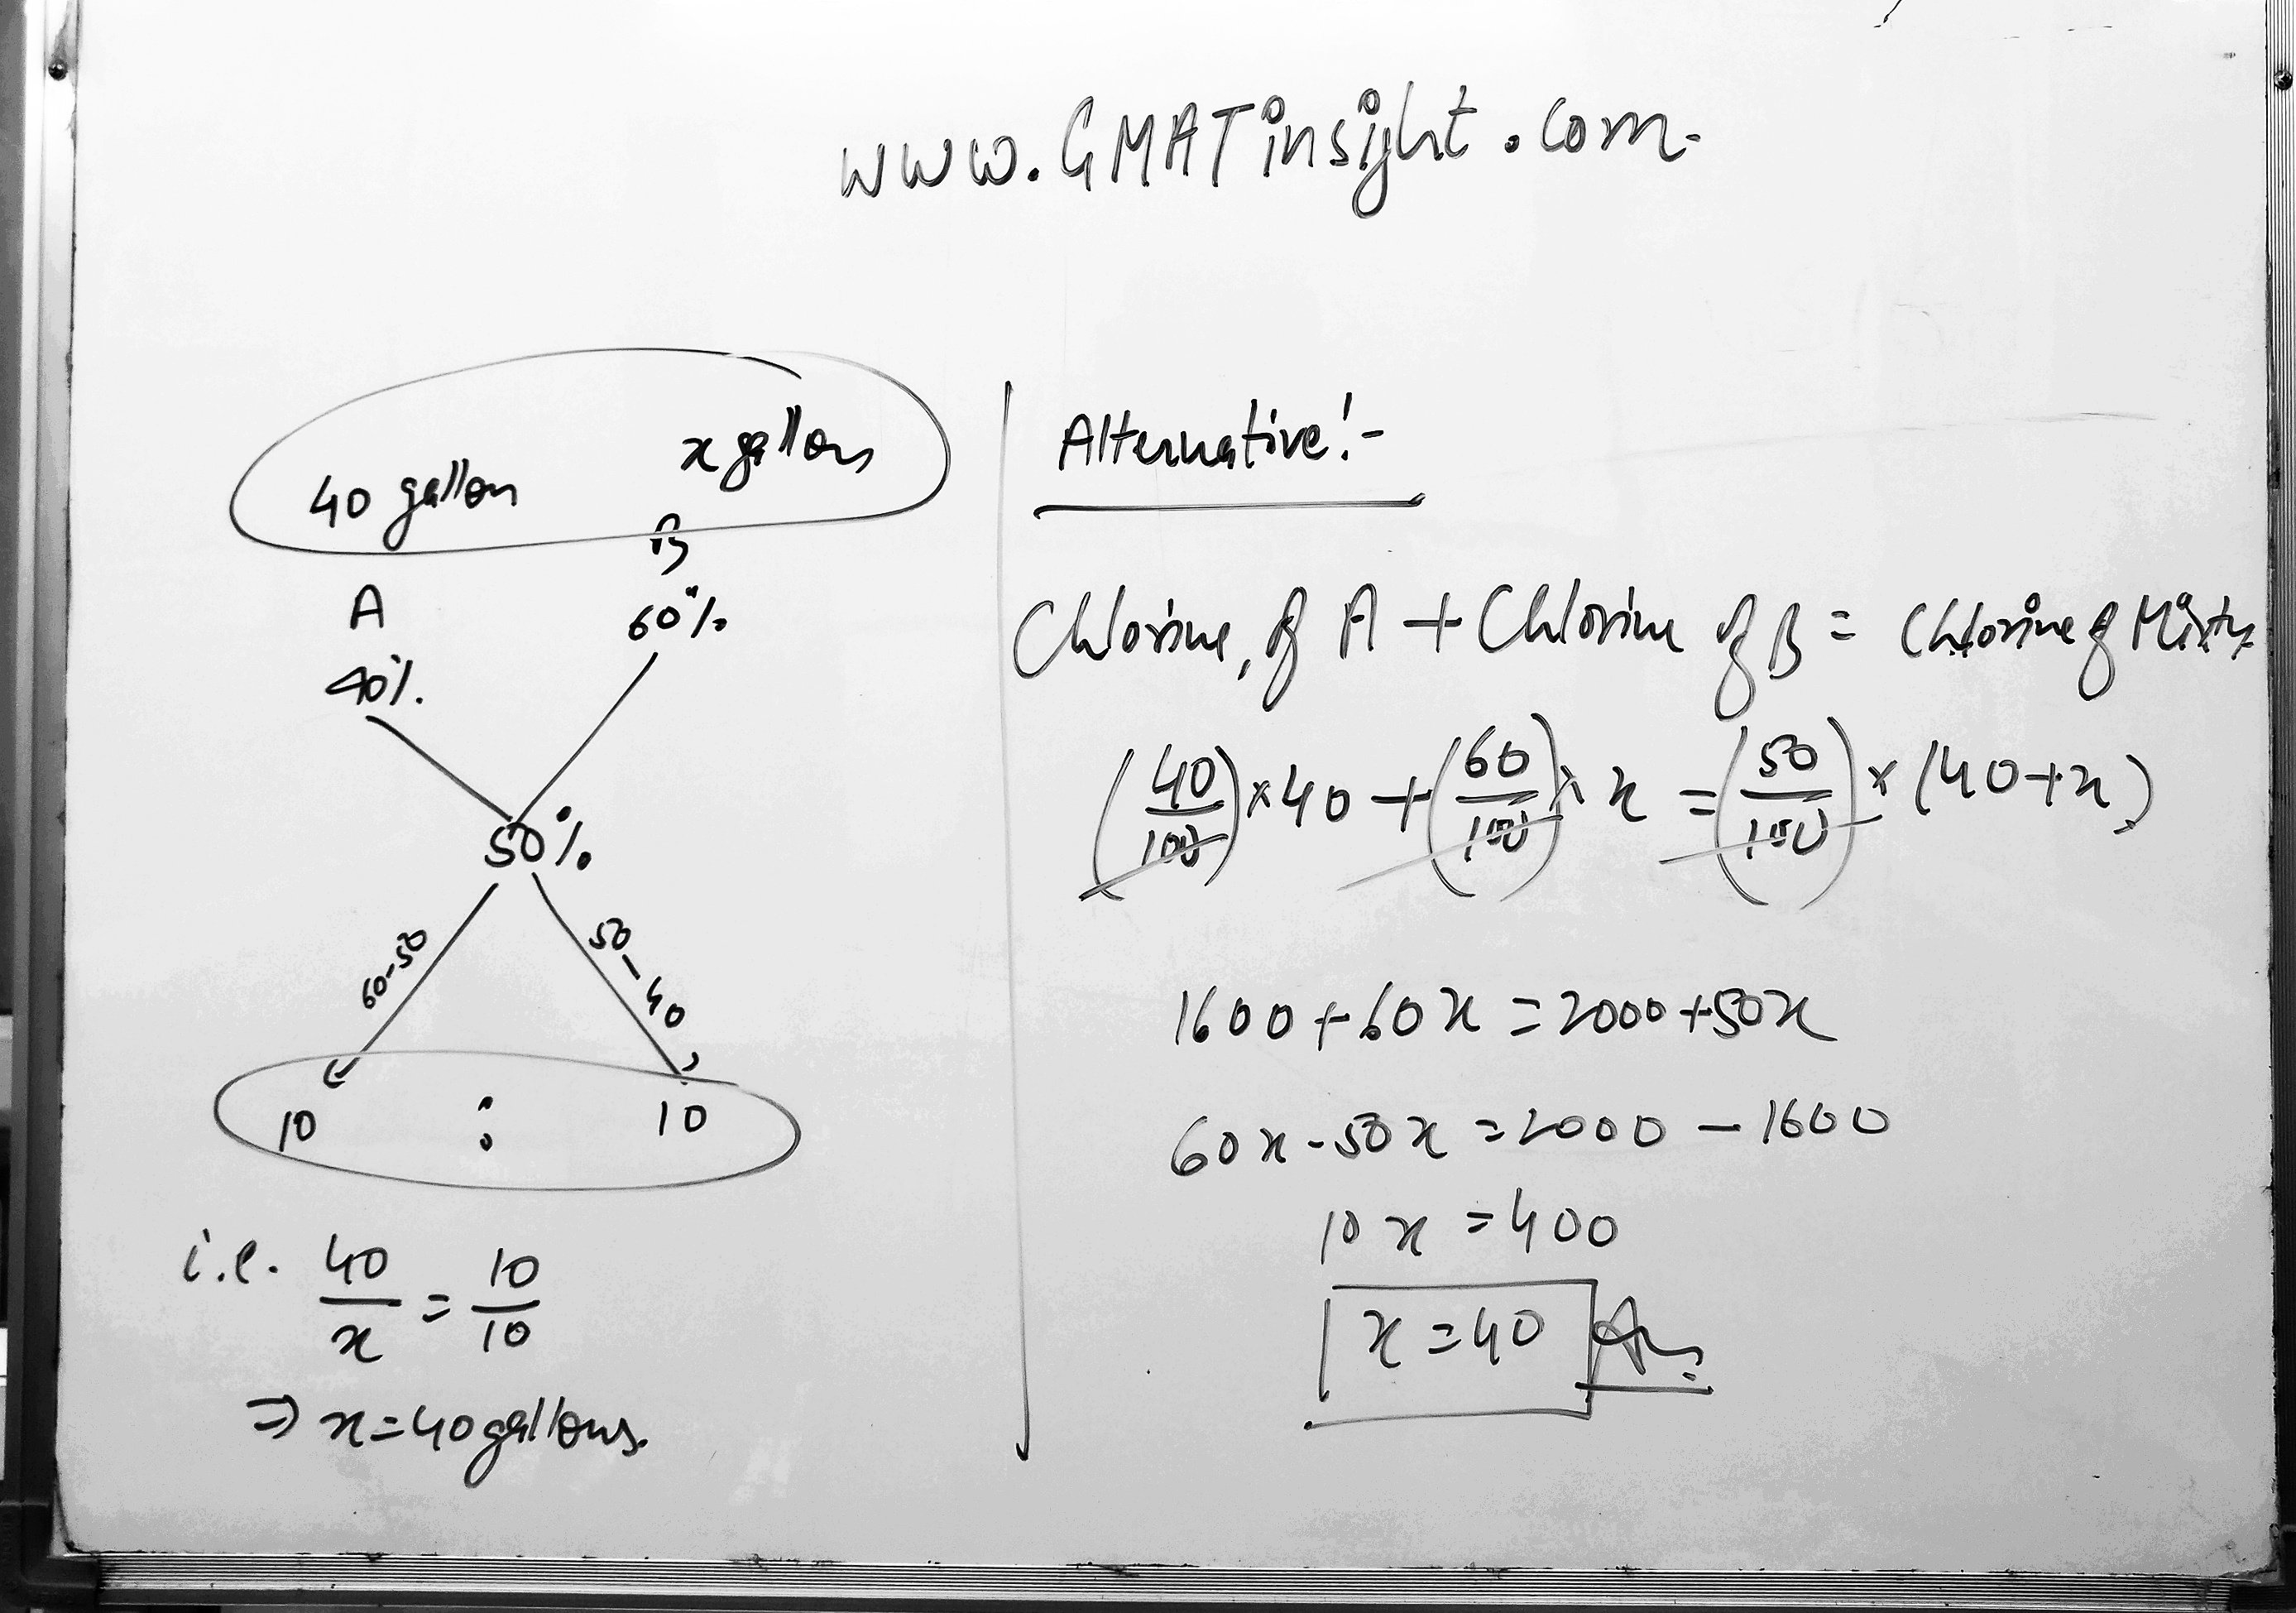 www.GMATinsight.com
40 gallon x gallons
A B
40% 60%
50%
60-50 50-40
10 : 10
i.e. 40/x = 10/10
⇒ x=40 gallons.
Alternative:-
Chlorine of A + Chlorine of B = Chlorine of Mixture
(40/100)×40 + (60/100)× x = (50/100)×(40+x)
1600+60x=2000+50x
60x-50x=2000-1600
10x=400
x=40 Ans.